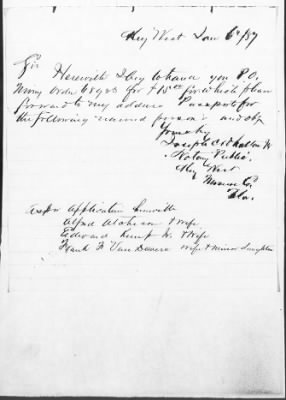 Key West Jan 6th/87
Sir
Herewith I beg to hand you P.O.
Money Order 6898 for $15 00 for which please
forward to my address Passports for
the following named persons and obl
Yours truly
Joseph
Notary Public
Key West
Monroe Co.
Fla.
As per Application herewith
Alfred Atcheson & Wife
Edward Kemp Jr. & Wife
Frank H Van Devere Wife & Minor Daughter